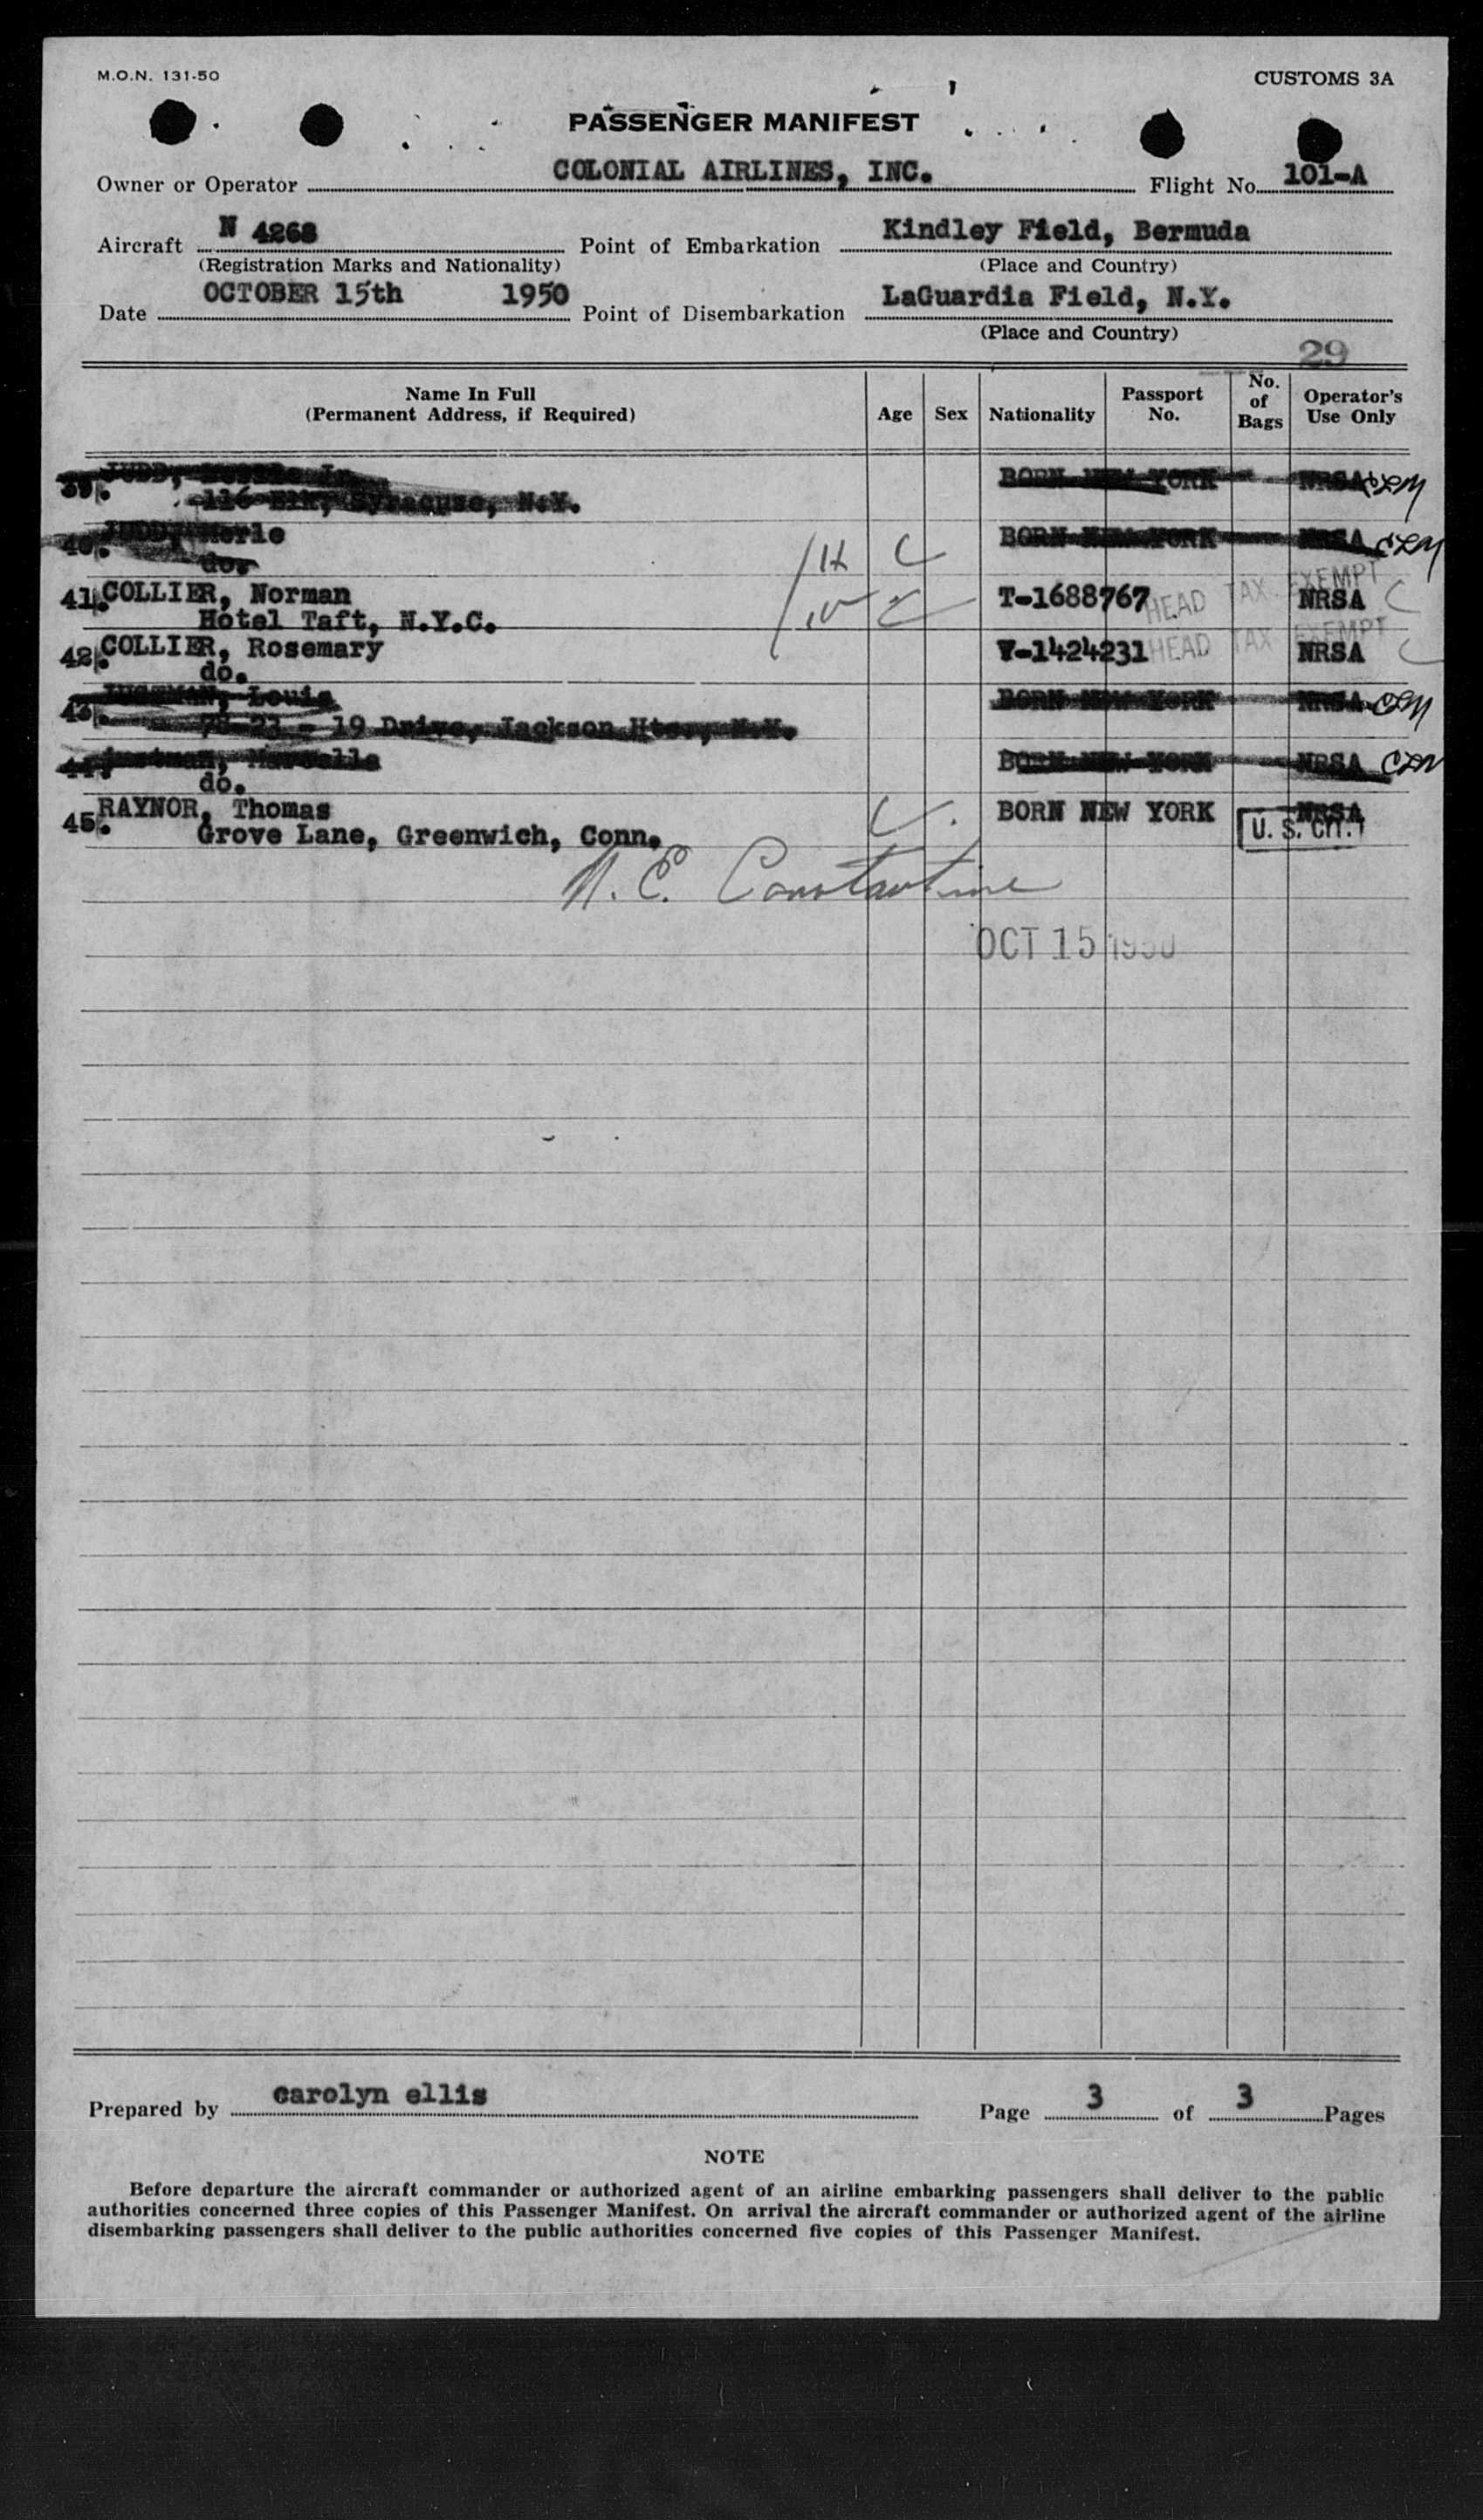 M.O.N. 131-50
CUSTOMS 3A
PASSENGER MANIFEST
Owner or Operator COLONIAL AIRLINES, INC. Flight No. 101-A
Aircraft N 4268 Point of Embarkation Kindley Field, Bermuda
(Registration Marks and Nationality) (Place and Country)
Date OCTOBER 15th 1950 Point of Disembarkation LaGuardia Field, N.Y.
(Place and Country)
29
Name In Full (Permanent Address, if Required) Age Sex Nationality Passport No. No. of Bags Operator's Use Only
39. JUDD, BORN NEW YORK NRSA
116 Elk, Syracuse, N.Y.
40. JUDD, Merle BORN NEW YORK NRSA
do.
41. COLLIER, Norman T-1688767 HEAD TAX EXEMPT NRSA C
Hotel Taft, N.Y.C.
42. COLLIER, Rosemary V-1424231 HEAD TAX EXEMPT NRSA C
do.
43. Louis BORN NEW YORK NRSA
19 Drive, Jackson Hts., N.Y.
44. BORN NEW YORK NRSA
do.
45. RAYNOR, Thomas BORN NEW YORK NRSA
Grove Lane, Greenwich, Conn. U. S. CIT.
N. E. Constantine
OCT 15 1950
Prepared by carolyn ellis Page 3 of 3 Pages
NOTE
Before departure the aircraft commander or authorized agent of an airline embarking passengers shall deliver to the public
authorities concerned three copies of this Passenger Manifest. On arrival the aircraft commander or authorized agent of the airline
disembarking passengers shall deliver to the public authorities concerned five copies of this Passenger Manifest.